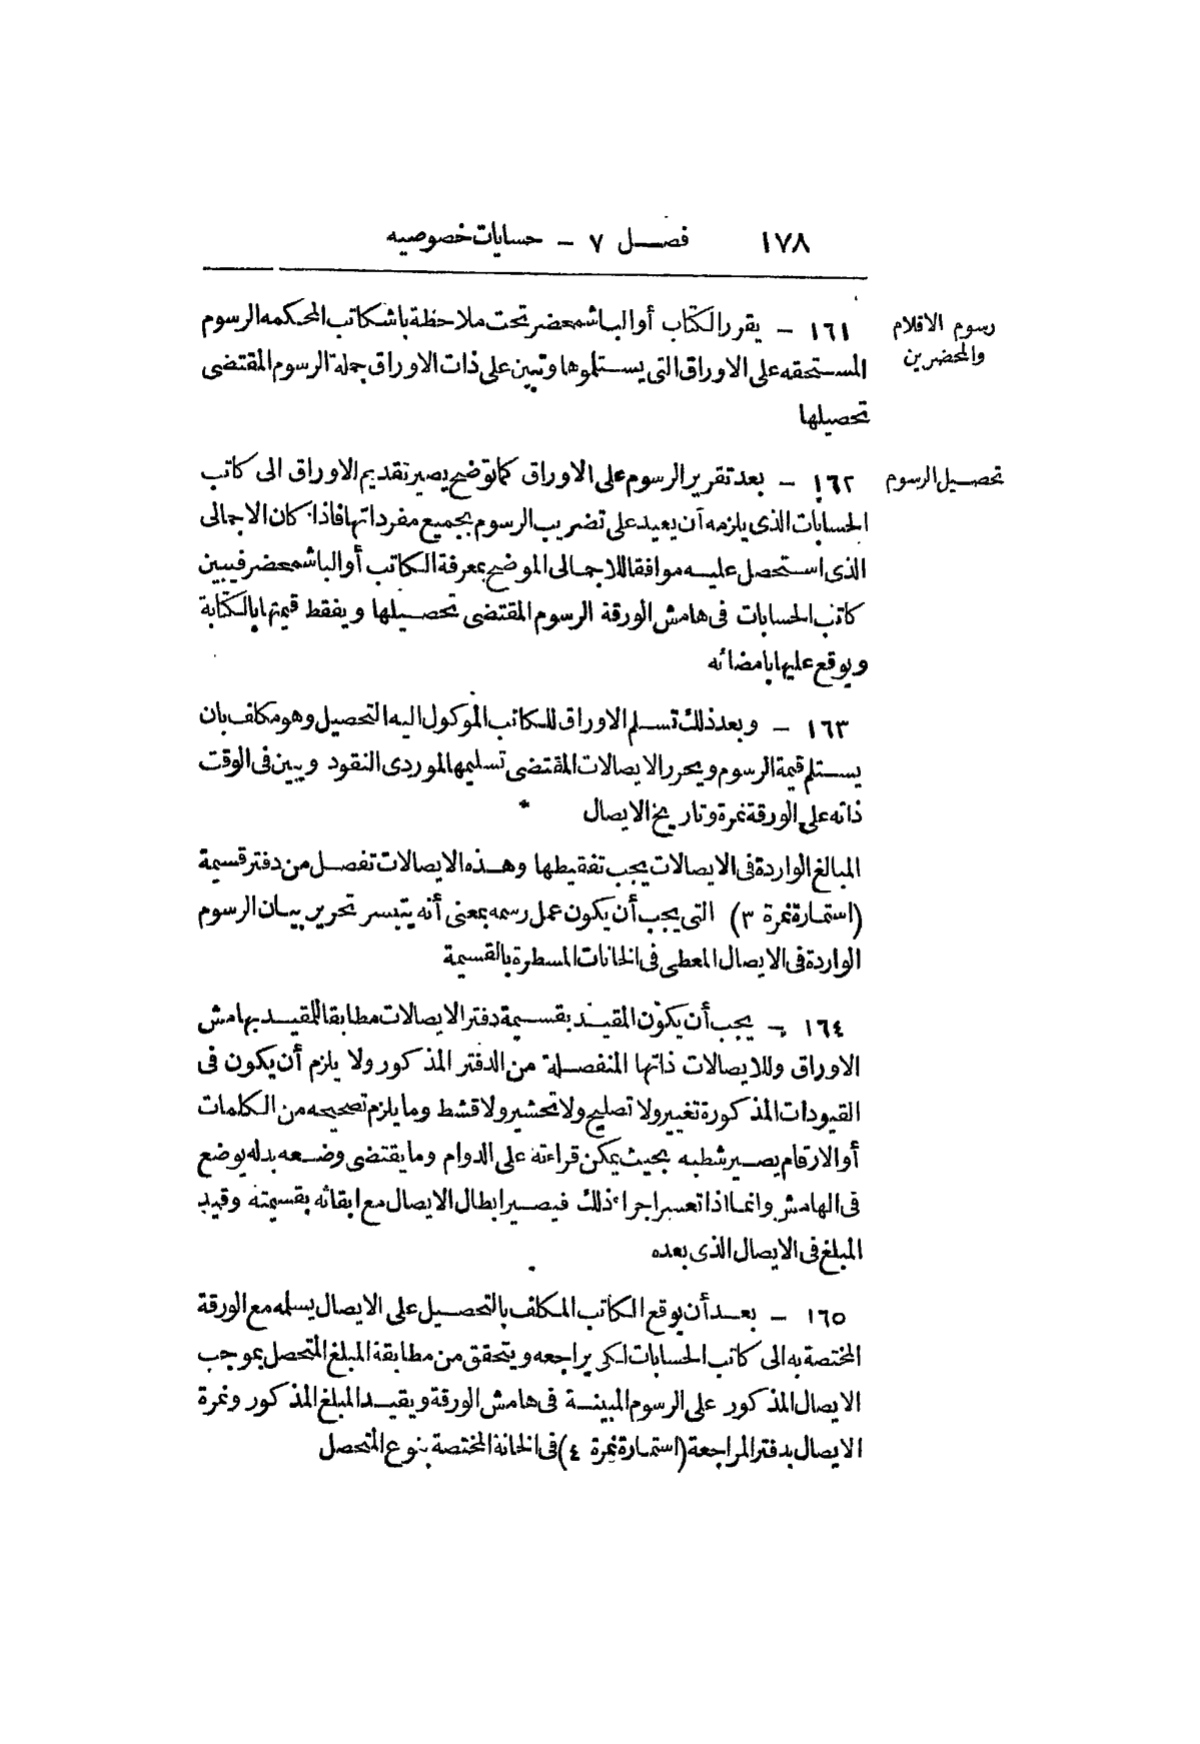 ١٧٨ فصل ٧ – حسابات خصوصيه
رسوم الاقلام
والمحضرين
١٦١ – يقرر الكتاب أو الباشمحضر تحت ملاحظة باشكاتب المحكمه الرسوم
المستحقه على الاوراق التى يستلموها وتبين على ذات الاوراق جملة الرسوم المقتضى
تحصيلها
تحصيل الرسوم
١٦٢ – بعد تقرير الرسوم على الاوراق كما توضح يصير تقديم الاوراق الى كاتب
الحسابات الذى يلزمه أن يعيد على تضريب الرسوم بجميع مفرداتها فاذا كان الاجمالى
الذى استحصل عليه موافقا للاجمالى الموضح بمعرفة الكاتب أو الباشمحضر فيبين
كاتب الحسابات فى هامش الورقة الرسوم المقتضى تحصيلها ويفقط قيمتها بالكتابة
ويوقع عليها بامضائه
١٦٣ – وبعد ذلك تسلم الاوراق للكاتب الموكول اليه التحصيل وهو مكلف بان
يستلم قيمة الرسوم ويحرر الايصالات المقتضى تسليمها لموردى النقود ويبين فى الوقت
ذاته على الورقة نمرة وتاريخ الايصال
المبالغ الواردة فى الايصالات يجب تفقيطها وهذه الايصالات تفصل من دفتر قسيمة
(استمارة نمرة ٣) التى يجب أن يكون عمل رسمه بمعنى أنه يتيسر تحرير بيان الرسوم
الواردة فى الايصال المعطى فى الخانات المسطرة بالقسيمة
١٦٤ – يجب أن يكون المقيد بقسيمة دفتر الايصالات مطابقا للمقيد بهامش
الاوراق وللايصالات ذاتها المنفصلة من الدفتر المذكور ولا يلزم أن يكون فى
القيودات المذكورة تغيير ولا تصليح ولا تحشير ولا قشط وما يلزم تصحيحه من الكلمات
أو الارقام يصير شطبه بحيث يمكن قراءته على الدوام وما يقتضى وضعه بدله يوضع
فى الهامش وانما اذا تعسر اجراء ذلك فيصير ابطال الايصال مع ابقائه بقسيمته وقيد
المبلغ فى الايصال الذى بعده
١٦٥ – بعد أن يوقع الكاتب المكلف بالتحصيل على الايصال يسلمه مع الورقة
المختصة به الى كاتب الحسابات لكى يراجعه ويتحقق من مطابقة المبلغ المتحصل بموجب
الايصال المذكور على الرسوم المبينة فى هامش الورقة ويقيد المبلغ المذكور ونمرة
الايصال بدفتر المراجعة (استمارة نمرة ٤) فى الخانة المختصة بنوع المتحصل